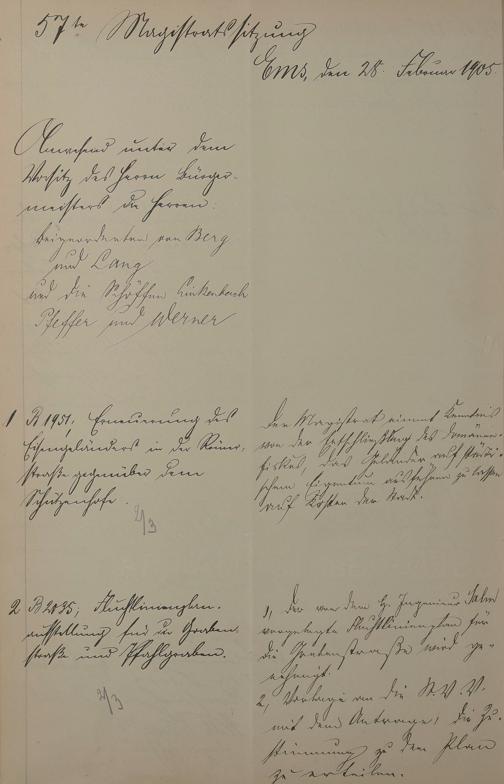 57te Magistratssitzung
Ems, den 28. Februar 1905.
Anwesend unter dem
Vorsitz des Herrn Bürger-
meisters die Herren:
Beigeordneten von Berg
und Lang
und die Schöffen Linkenbach
Pfeffer und Werner
1 B 1951, Erneuerung des
Eisengeländers in der Römer-
straße gegenüber dem
Schützenhofe.
2/3
Der Magistrat nimmt Kenntnis
von der Entschließung des Domänen-
fiskus, das Geländer auf städti-
schem Eigentum ausführen zu lassen
auf Kosten der Stadt.
2 B 2035; Fluchtlinienplan-
aufstellung für die Graben-
straße und Pfahlgraben.
2/3
1, Der von dem H. Ingenieur Salm
vorgelegte Fluchtlinienplan für
die Grabenstraße wird ge-
nehmigt.
2, Vorlage an die St. V. V.
mit dem Antrage, die Zu-
stimmung zu dem Plan
zu erteilen.